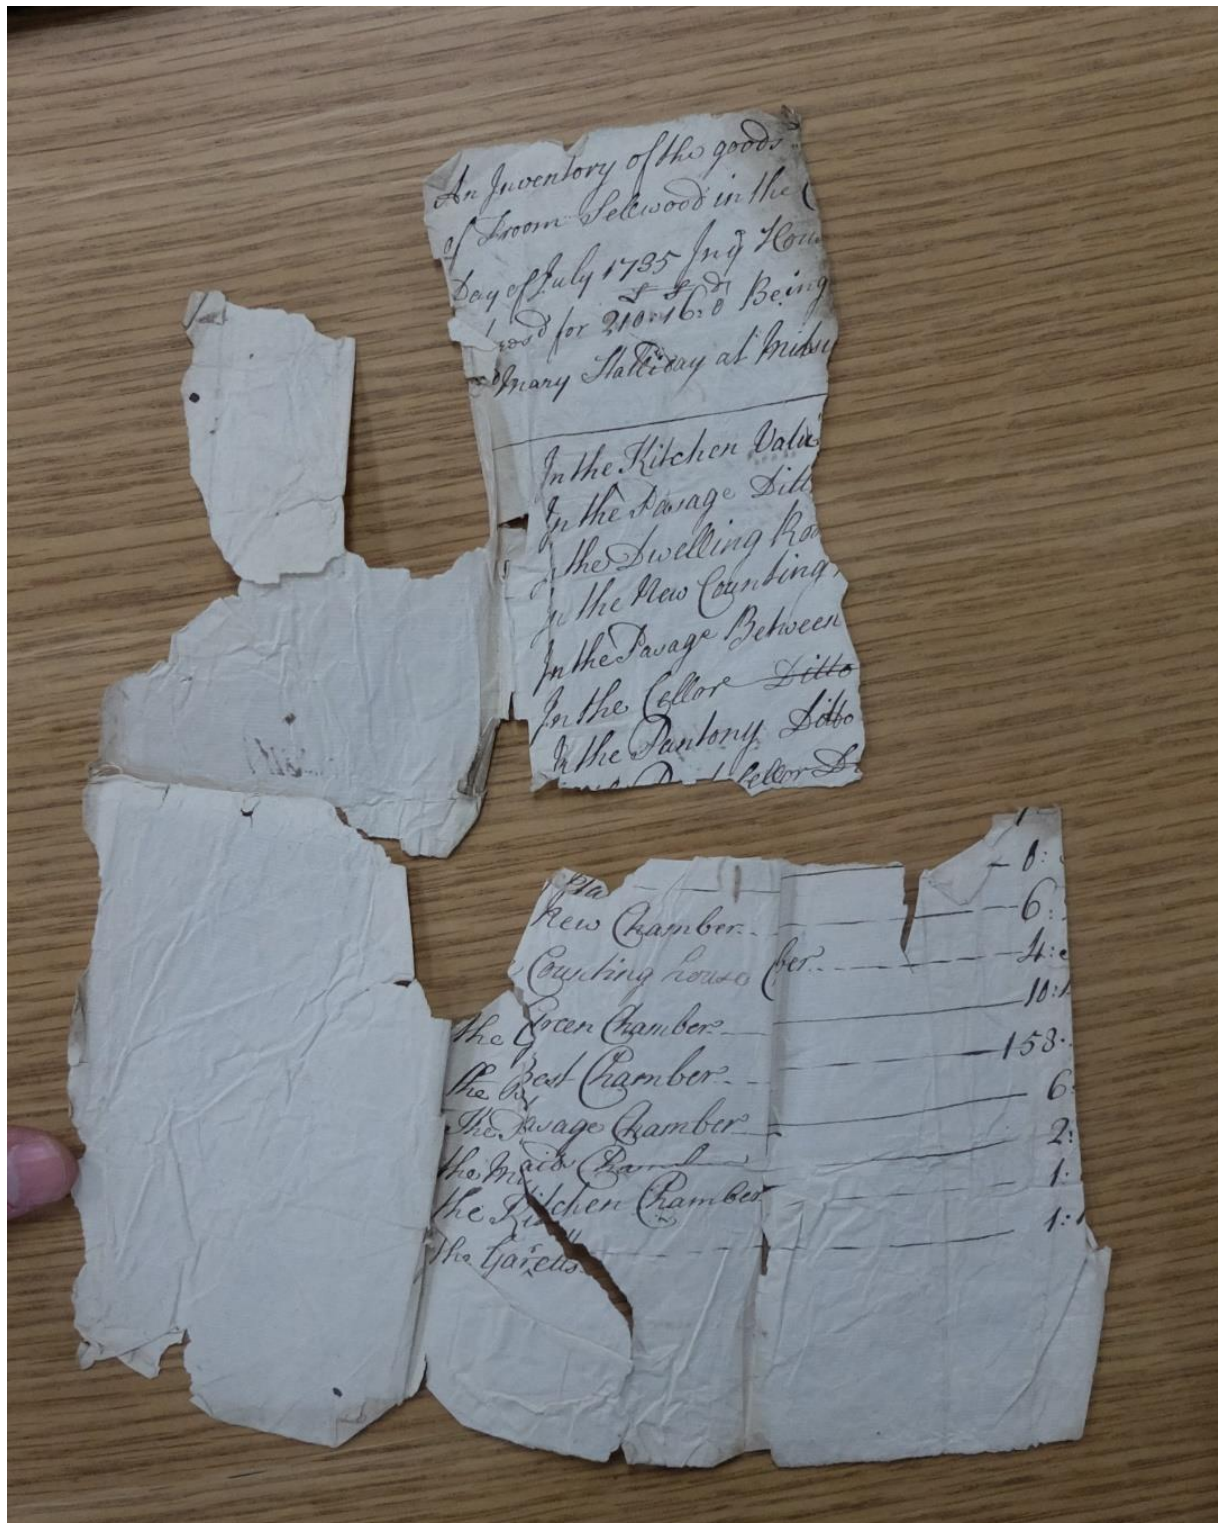 An Inventory of the goods
of Froom Sellwood in the
Day of July 1735 In ye Hou
for 210:16:0 Being
Mary Halliday at
In the Kitchen Valu
In the Pasage Ditt
the Dwelling Roo
In the New Counting
In the Pasage Between
In the Cellor Ditto
In the Pantony Ditto
Cellor D
0:
New Chamber 6:
Counting house ber 4:
the Green Chamber 10:
the Best Chamber 158
The Pasage Chamber 6
the Maids Chamber 2:
the Kitchen Chamber 1:
the Garetts 1: